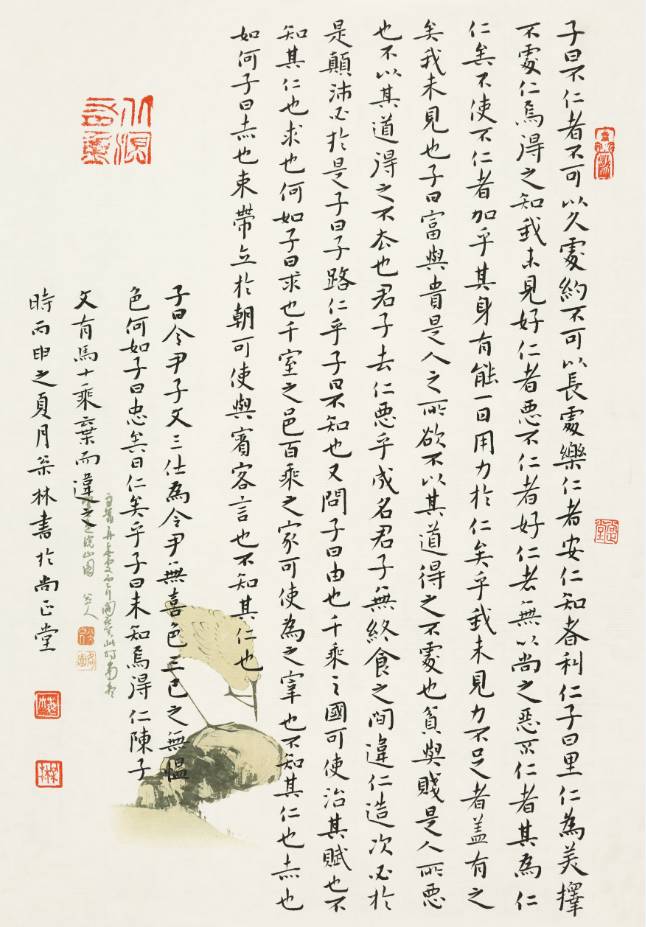 子曰不仁者不可以久處約不可以長處樂仁者安仁知者利仁子曰里仁為美擇
不處仁焉得之知我未見好仁者惡不仁者好仁者無以尚之惡不仁者其為仁
仁矣不使不仁者加乎其身有能一日用力於仁矣乎我未見力不足者蓋有之
矣我未見也子曰富與貴是人之所欲不以其道得之不處也貧與賤是人所惡
也不以其道得之不去也君子去仁惡乎成名君子無終食之間違仁造次必於
是顛沛必於是子曰子路仁乎子曰不知也又問子曰由也千乘之國可使治其賦也不
知其仁也求也何如子曰求也千室之邑百乘之家可使為之宰也不知其仁也赤也
如何子曰赤也束帶立於朝可使與賓客言也不知其仁也
子曰令尹子文三仕為令尹無喜色三已之無慍
色何如子曰忠矣曰仁矣乎子曰未知焉得仁陳子
文有馬十乘棄而違之
時丙申之夏月榮林書於尚正堂